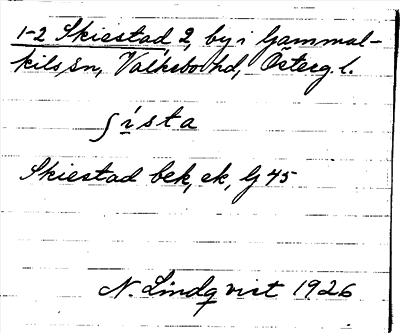 1-2 Skiestad 2, by i Gammal-
kils sn, Valkebo hd, Österg. l.
ʃ ísta
Skiestad bek, ek, G 45
N. Lindqvist 1926